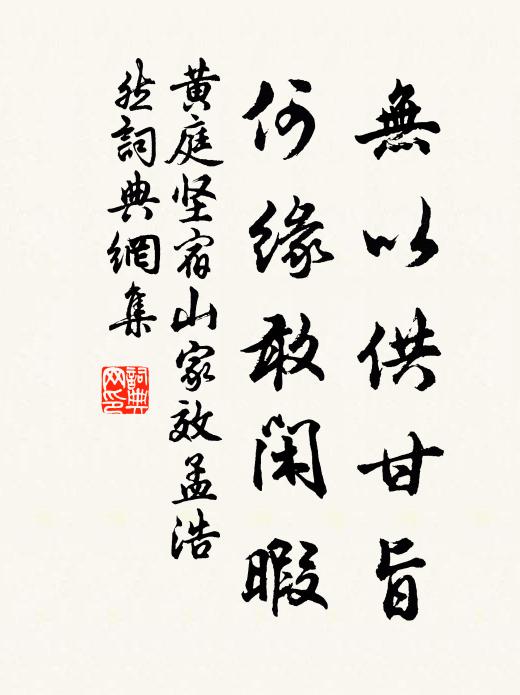 無以供甘旨
何緣敢閑暇
黄庭坚宿山家效孟浩
然詞典網集
詞典
网印